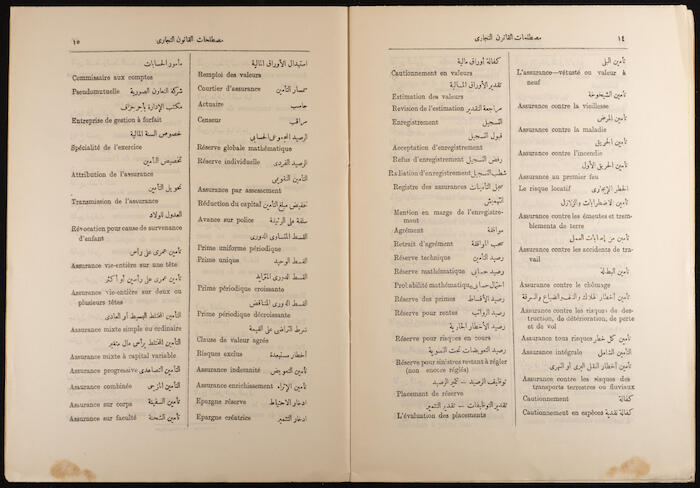 ١٤
مصطلحات القانون التجارى
تأمين البلى
L'assurance—vétusté ou valeur à
neuf
تأمين الشيخوخة
Assurance contre la vieillesse
تأمين المرض
Assurance contre la maladie
تأمين الحريق
Assurance contre l'incendie
تأمين الحريق الأول
Assurance au premier feu
الخطر الإيجارى
Le risque locatif
تأمين الاضطرابات والزلازل
Assurance contre les émeutes et trem-
blements de terre
تأمين من إصابات العمل
Assurance contre les accidents de tra-
vail
تأمين البطالة
Assurance contre le chômage
تأمين أخطار الهلاك والتلف والضياع والسرقة
Assurance contre les risques de des-
truction, de détérioration, de perte
et de vol
تأمين كل خطر
Assurance tous risques
التأمين الشامل
Assurance intégrale
تأمين أخطار النقل البرى أو النهرى
Assurance contre les risques des
transports terrestres ou fluviaux
كفالة
Cautionnement
كفالة نقدية
Cautionnement en espèces
كفالة أوراق مالية
Cautionnement en valeurs
تقدير الأوراق المالية
Estimation des valeurs
مراجعة التقدير
Revision de l'estimation
التسجيل
Enregistrement
قبول التسجيل
Acceptation d'enregistrement
رفض التسجيل
Refus d'enregistrement
شطب التسجيل
Radiation d'enregistrement
سجل التأمينات
Registre des assurances
التهميش
Mention en marge de l'enregistre-
ment
موافقة
Agrément
سحب الموافقة
Retrait d'agrément
رصيد التأمين
Réserve technique
رصيد حسابى
Réserve mathématique
احتمال حسابى
Probabilité mathématique
رصيد الأقساط
Réserve des primes
رصيد الرواتب
Réserve pour rentes
رصيد الأخطار الجارية
Réserve pour risques en cours
رصيد التعويضات تحت التسوية
Réserve pour sinistres restant à régler
(non encore réglés)
توظيف الرصيد — تثمير الرصيد
Placement de réserve
تقدير التوظيفات — تقدير التثمير
L'évaluation des placements
١٥
مصطلحات القانون التجارى
استبدال الأوراق المالية
Remploi des valeurs
سمسار التأمين
Courtier d'assurance
حاسب
Actuaire
مراقب
Censeur
الرصيد المجموعى الحسابى
Réserve globale mathématique
الرصيد الفردى
Réserve individuelle
التأمين التقويمى
Assurance par assessment
تخفيض مبلغ التأمين
Réduction du capital
سلفة على الوثيقة
Avance sur police
القسط المتساوى الدورى
Prime uniforme périodique
القسط الوحيد
Prime unique
القسط الدورى المتزايد
Prime périodique croissante
القسط الدورى المتناقص
Prime périodique décroissante
شرط التراضى على القيمة
Clause de valeur agrée
أخطار مستبعدة
Risques exclus
تأمين التعويض
Assurance indemnité
تأمين الإثراء
Assurance enrichissement
ادخار الاحتياط
Epargne réserve
ادخار التثمير
Epargne créatrice
مأمور الحسابات
Commissaire aux comptes
شركة التعاون الصورية
Pseudomutuelle
مكتب الإدارة بأجر جزاف
Entreprise de gestion à forfait
خصوص السنة المالية
Spécialité de l'exercice
تخصيص التأمين
Attribution de l'assurance
تحويل التأمين
Transmission de l'assurance
العدول للولاد
Révocation pour cause de survenance
d'enfant
تأمين عمرى على رأس
Assurance vie-entière sur une tête
تأمين عمرى على رأسين أو أكثر
Assurance vie-entière sur deux ou
plusieurs têtes
التأمين المختلط البسيط أو العادى
Assurance mixte simple ou ordinaire
التأمين المختلط برأس مال متغير
Assurance mixte à capital variable
التأمين التصاعدى
Assurance progressive
التأمين المزجى
Assurance combinée
تأمين السفينة
Assurance sur corps
تأمين الشحنة
Assurance sur faculté